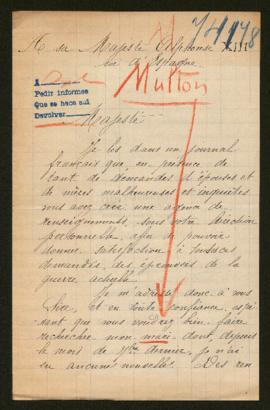 74178
A sa Majesté Alphonse XIII
roi d'Espagne
A
Pedir informes
Que se haga así
Devolver
Multon
Majesté
Je lis dans un journal
français que, en présence de
tant de demandes d'épouses et
de mères malheureuses et inquiètes
vous avez créé une agence de
renseignements, sous votre direction
personnelle, afin de pouvoir
donner satisfaction à toutes ces
demandes, des éprouvées de la
guerre actuelle.
Je m'adresse donc à vous
Sire, et en toute confiance, espé-
rant que vous voudrez bien faire
rechercher mon mari dont, depuis
le mois de 9bre dernier, je n'ai
eu aucune nouvelle. Des ren